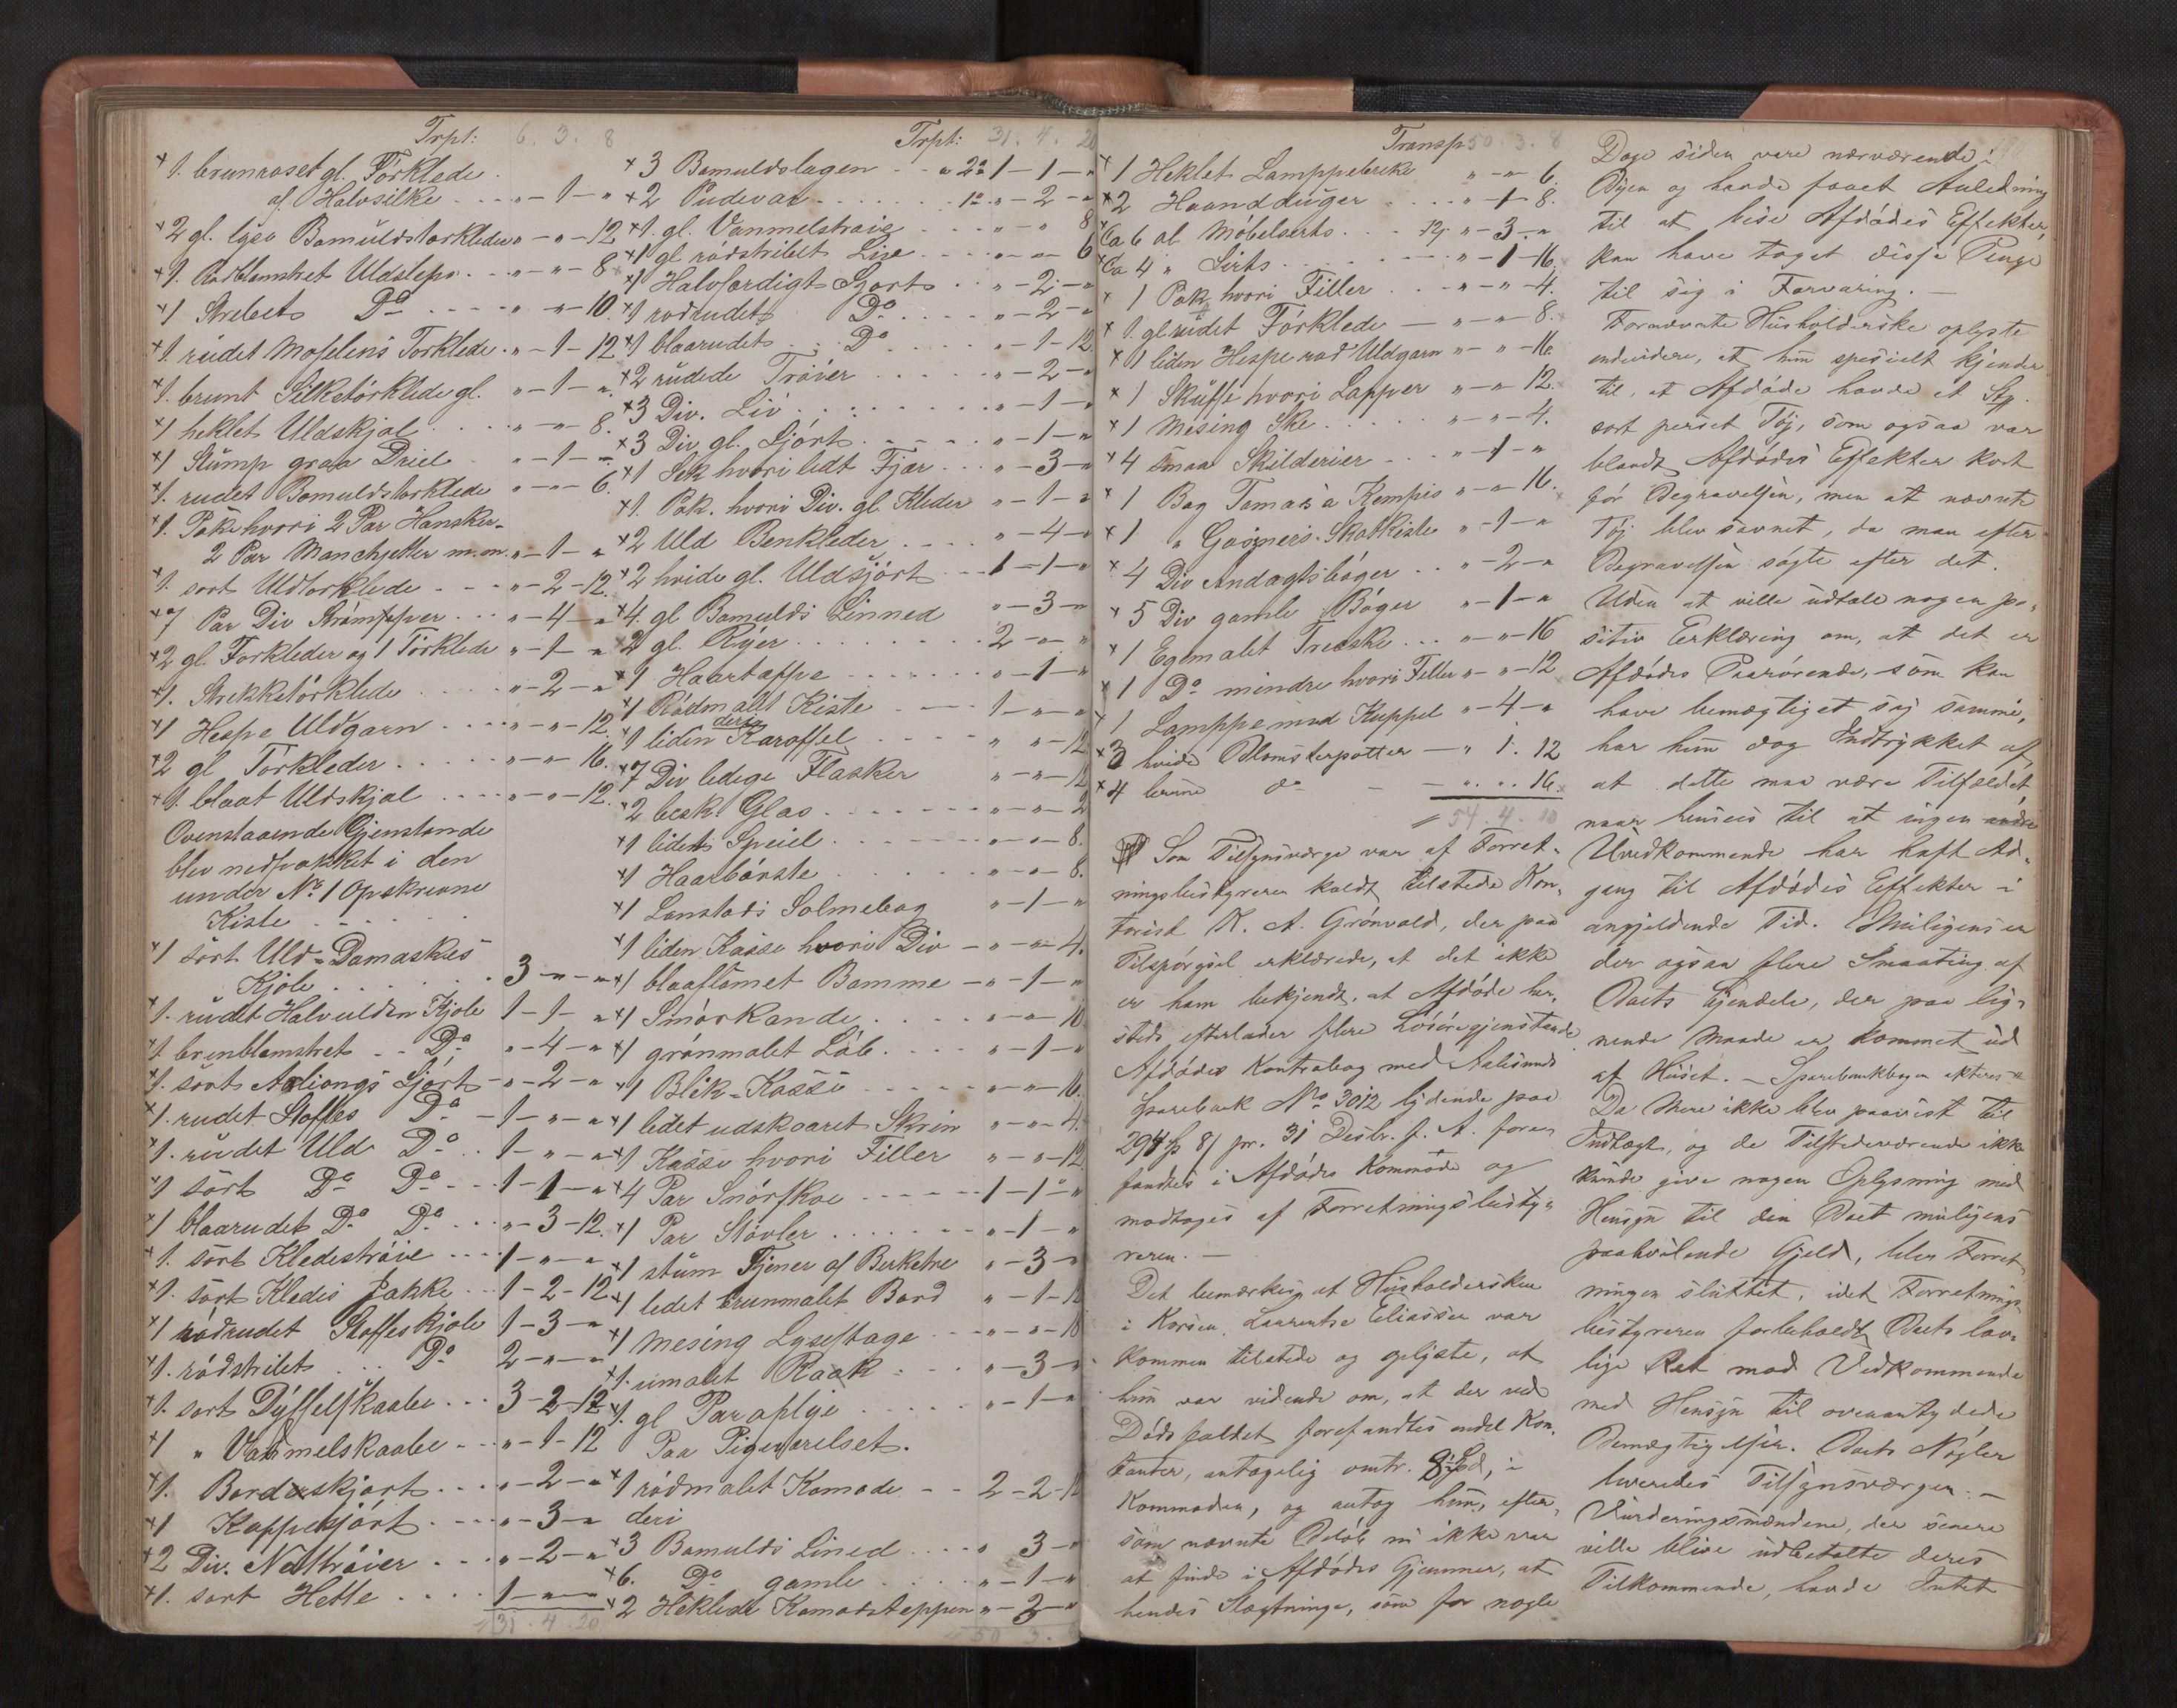 Trpt: 6. 3. 8
×1. brunroset gl. Tørklede
af Halvsilke . . . „ – 1 – „
×2 gl. lyse Bomuldstørkleder „ – „ – 12
×1. Rødblomstret Uldsleps . . „ – „ – 8
×1 Strebet Do . . . . „ – „ – 10.
×1. rudet Moselins Tørklede . „ – 1 – 12
×1. brunt Silketørklede gl. „ – 1 – „
×1 heklet Uldskjal . . . „ – „ – 8.
×1 Stump graa Driel . . „ – 1 – „
×1. rudet Bomuldstørklede „ – „ – 6.
×1. Pakke hvori 2 Par Hansker –
2 Par Manchetter m.m. „ – 1 – „
×1. sort Uldtørklede . . – „ – 2 – 12.
×7 Par Div Strømpper . . . „ – 4 – „
×2 gl. Forkleder og 1 Tørklede „ – 1 – „
×1. Strekketørklede . . . . „ – 2 – „
×1 Hespe Uldgarn . . . . „ – „ – 12.
×2 gl Tørkleder . . . . . „ – „ – 16.
×1. blaat Uldskjal . . . . „ – „ – 12.
Ovenstaaende Gjenstande
blev nedpakket i den
under No 1 Opskrevne
Kiste . . . . .
×1 sort Uld-Damaskes
Kjole . . . . . . 3 – „ – „
×1. rudet Halvulden Kjole 1 – 1 – „
×1. brunblomstret . . Do „ – 4 – „
×1. sort Sjørt – „ – 2 – „
×1. rudet Stoffes Do – 1 – „ – „
×1. rudet Uld Do . . 1 – „ – „
×1 sort Do Do . . . 1 – 1 – „
×1 blaarudet Do Do . . . „ – 3 – 12.
×1. sort Kledestrøie . . . . 1 – „ – „
×1. sort Kledes Jakke . . . 1 – 2 – 12
×1 rødrudet Stoffeskjole 1 – 3 – „
×1. rødstribet . . Do 2 – „ – „
×1. sort Dyffelskaabe . . . 3 – 2 – 12
×1 „ Vadmelskaabe . . . „ – 1 – 12
×1. Bordeskjørt . . . . „ – 2 – „
×1 Kappeskjørt . . . . „ – 3 – „
×2 Div. Nattrøier . . . . „ – 2 – „
×1. sort Hette . . . . . 1 – „ – „
31 . 4 . 20
Trpt: 31. 4. 20
×3 Bomuldslagen . . . „ 2a 1 – 1 – „
×2 Pudevar . . . . . . 1a „ – 2 – „
×1. gl. Vammelstrøie . . . „ – „ 8
×1 gl rødstribet Lise . . . . „ – „ 6
×1 Halvferdigt Sjørt . . „ – 2 – „
×1 rødrudet Do . . . . „ – 2 – „
×1 blaarudet . . Do . . . . „ – 1 – 12
×2 rudede Trøier . . . . . „ – 2 – „
×3 Div. Liv . . . . . . . „ – 1 – „
×3 Div gl. Sjørt . . . . . „ – 1 – „
×1 Sek hvori lidt Fjær . . . „ – 3 – „
×1. Pak. hvori Div. gl. Kleder „ – 1 – „
×2 Uld Benkleder . . . . „ – 4 – „
×2 hvide gl. Uldsjørt . . . 1 – 1 – „
×4. gl Bomulds Linned „ – 3 – „
×2 gl. Ryer . . . . . . . . 2 – „ – „
×1 Haartappe . . . . . . „ – 1 – „
×1 Rødmalt Kiste . . . . 1 – „ – „
×1 liden Karoffel . . . . . „ „ – 12
×7 Div ledige Flasker „ – „ – 12
×2 besk. Glas . . . . . „ – „ – 2
×1 lidet Speiel . . . . . . „ – „ – 8.
×1 Haarbørste . . . . . . „ – „ – 8.
×1 Lanstads Salmebog „ – 1 – „
×1 liden Kasse hvori Div – „ – „ – 4.
×1 blaaflamet Bomme – „ – 1 – „
×1 Smørkande . . . . . „ – „ – 10
×1 grønmalet Løb . . . . „ – 1 – „
×1 Blik-Kasse . . . . . „ – „ – 16.
×1 lidet udskaaret Skrin „ – „ – 4.
×1 Kasse hvori Filler „ – „ – 12
×4 Par Snørskoe . . . . . 1 – 1 – „
×1 Par Støvler . . . . . . . „ – 1 – „
×1 stum Tjener af Birketræ „ – 3 – „
×1 lidet brunmalet Bord „ – 1 – 12
×1 mesing Lysestage . . . „ – „ – 18
×1. umalet Raak . . . . „ – 3 – „
×1. gl Paraplye . . . . . „ – 1 – „
Paa Pigeværelset.
×1 rødmalet Komode – – 2 – 2 – 12
deri
×3 Bomulds Lined . . . . „ 3 – „
×6. Do gamle . . . . „ – 1 – „
×2 Heklede Komodeteppen „ – 3 – „
50 3.
Transp. 50. 3. 8
×1 Heklet Lamppebrikke „ – „ 6.
×2 Haandduger . . . . „ – 1 – 8.
×Ca 6 al Møbelserts . . . 12/ „ – 3 – „
×Ca 4 „ Sirts . . . . . . . „ – 1 – 16.
×1 Pak hvori Filler . . . „ – „ – 4.
×1. gl rudet Tørklede — „ – „ – 8.
×1 liden Hespe rød Uldgarn „ – „ – 16.
×1 Skuffe hvori Lapper „ – „ 12.
×1 Mesing Ske . . . . „ – „ – 4.
×4 smaa Skilderier . . . „ – 1 – „
×1 Bog Tomas a Kempis „ – „ – 16.
×1 „ Gosners Skatkiste „ – 1 – „
×4 Div Andagtsbøger . . „ – 2 – „
×5 Div gamle Bøger „ – 1 – „
×1 Egemalet Treæske . . . „ – „ – 16
×1 Do mindre hvori Filler „ – „ – 12
×1 Lamppe med Kuppel „ – 4 – „
×3 hvide Blomsterpotter — „ 1. 12
×4 brune do – – „ . „ . 16.
54. 4. 10
Som Tilsynsværge var af Forret-
ningsbestyreren kaldt tilstede Kon-
torist K. A. Grønvald, der paa
Tilspørgsel erklærede, at det ikke
er ham bekjendt, at Afdøde her-
steds efterlader flere Løsøregjenstande
Afdødes Kontrabog med Aalesunds
Sparebank No 3012 lydende paa
pr. 31 Desbr. f. A. fore-
fandtes i Afdødes Kommode og
modtoges af Forretningsbesty-
reren. —
Det bemærkes, at Husholdersken
i Korsen Laurentse Eliassen var
kommen tilstede og oplyste, at
hun var vidende om, at der ved
Dødsfaldet forefandtes endel Kon-
tanter, antagelig omtr. 8 Spd, i
Kommoden, og antog hun, efter-
som nævnte Beløb nu ikke var
at finde i Afdødes Gjemmer, at
hendes Slægtninge, som for nogle
Dage siden vare nærværende i
Byen og havde faaet Anledning
til at bese Afdødes Effekter,
kan have taget disse Penge
til sig i Forvaring. —
Fornævnte Husholderske oplyste
endvidere, at hun spesielt kjender
til, at Afdøde havde et Stk.
sort perset Tøj, som ogsaa var
blandt Afdødes Effekter kort
før Begravelsen, men at nævnte
Tøj blev savnet, da man efter
Begravelsen søgte efter det.
Uden at ville udtale nogen po-
sitiv Erklæring om, at det er
Afdødes Paarørende, som kan
have bemægtiget sig samme,
har hun dog Indtrykket af,
at dette maa være Tilfældet,
naar henses til at ingen
Uvedkommende har haft Ad-
gang til Afdødes Effekter i
angjeldende Tid. Muligens er
der ogsaa flere Smaating af
Boets Ejendele, der paa lig-
nende Maade er kommet ud
af Huset. — Sparebankbogen
Da Mere ikke blev paavist til
Indtægt, og de Tilstedeværende ikke
kunde give nogen Oplysning med
Hensyn til den Boet muligens
paahvilende Gjeld, blev Forret-
ningen sluttet, idet Forretnings-
bestyreren forbeholdt Boets lov-
lige Ret mod Vedkommende
med Hensyn til ovenantydede
Bemægtigelser. Boets Nøgler
leveredes Tilsynsværgen. —
Vurderingsmændene, der senere
ville blive udbetalte deres
Tilkommende, havde Intet